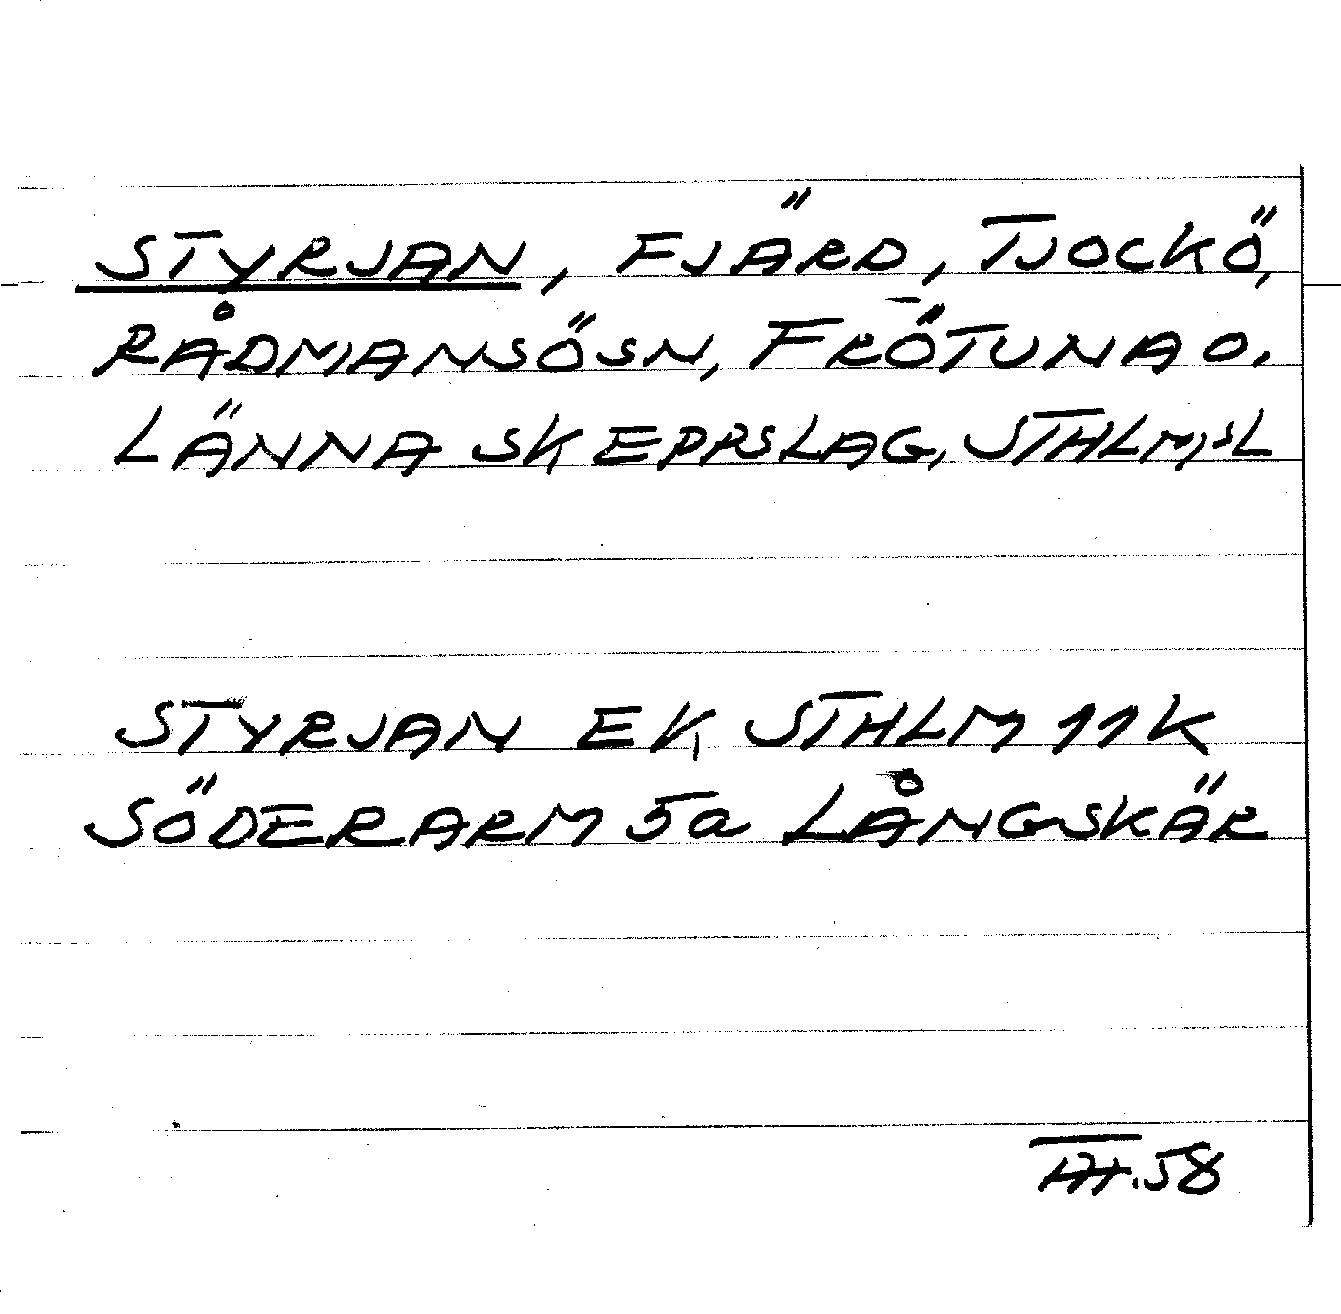 STYRJAN, FJÄRD, TJOCKÖ,
RÅDMANSÖSN, FRÖTUNA O.
LÄNNA SKEPPSLAG, STHLMSL
STYRJAN EK STHLM 11K
SÖDERARM 5a LÅNGSKÄR
58